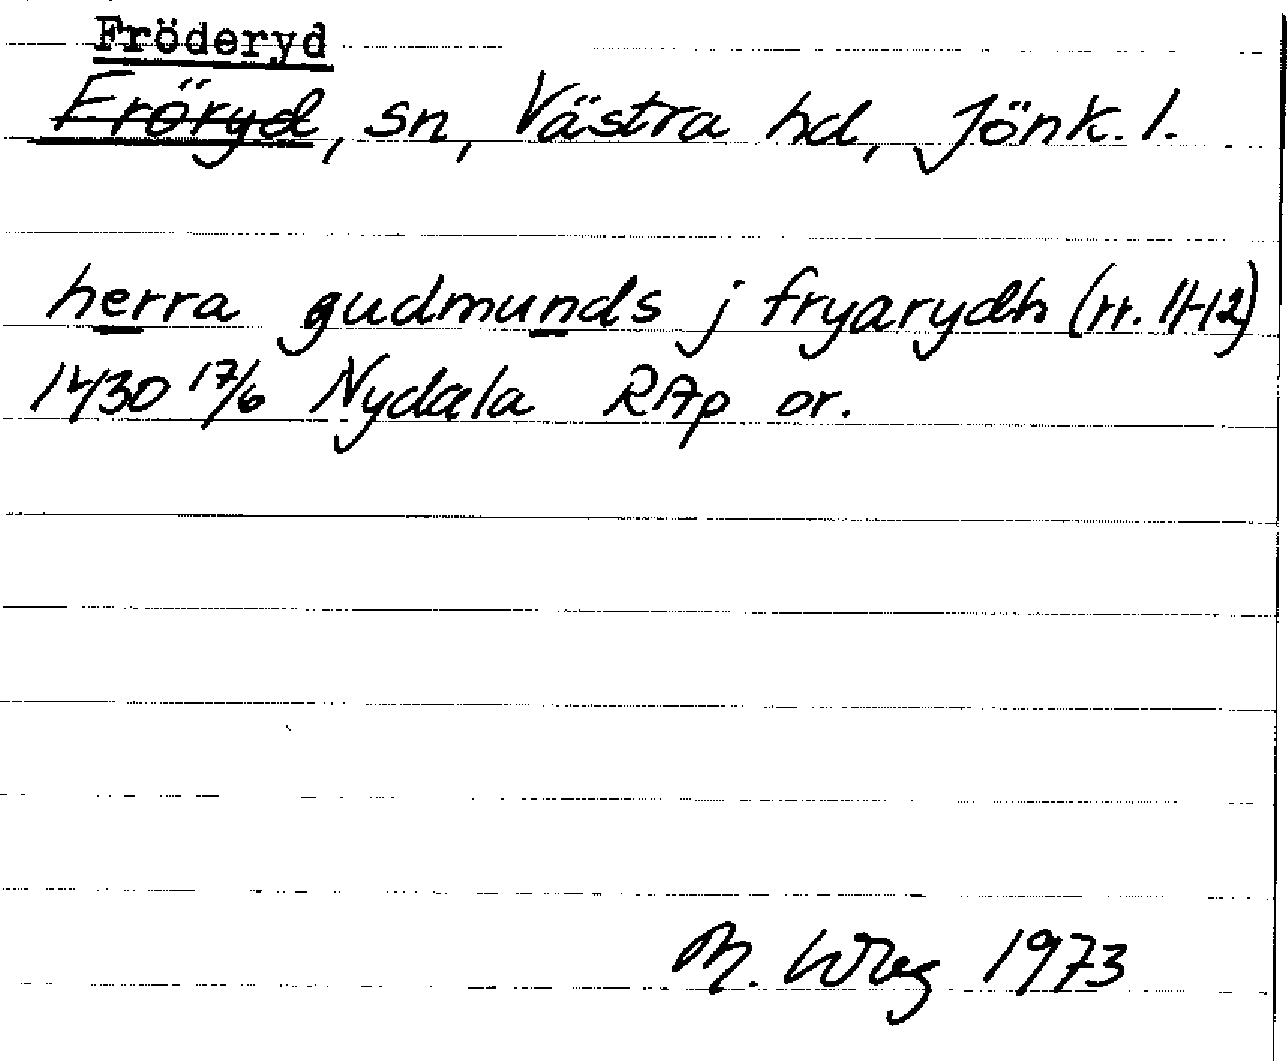 Fröderyd
Fröryd, sn, Västra hd, Jönk. l.
herra gudmunds j fryarydh (rr. 11-12)
1430 17/6 Nydala RAp or.
M. Wreg 1973